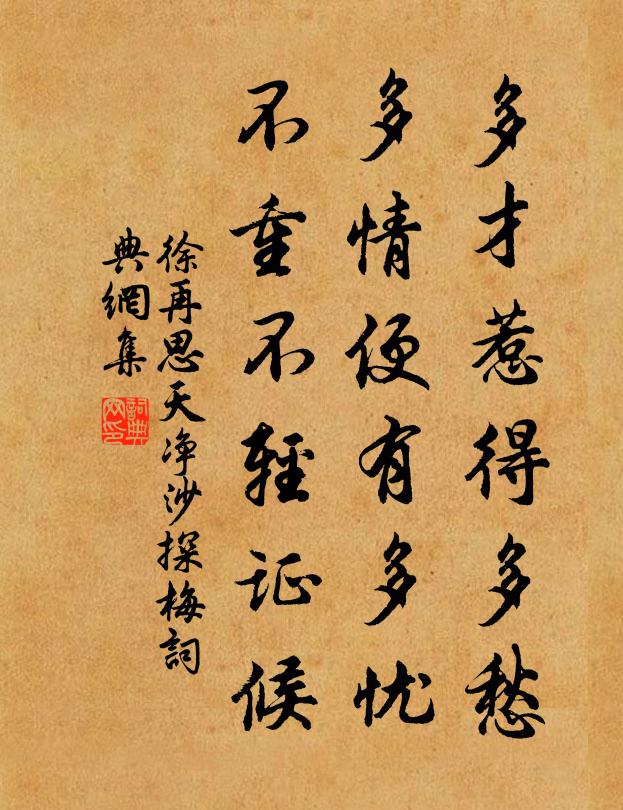 多才惹得多愁
多情便有多忧
不重不輕证候
徐再思天净沙探梅詞
典網集
詞典網印